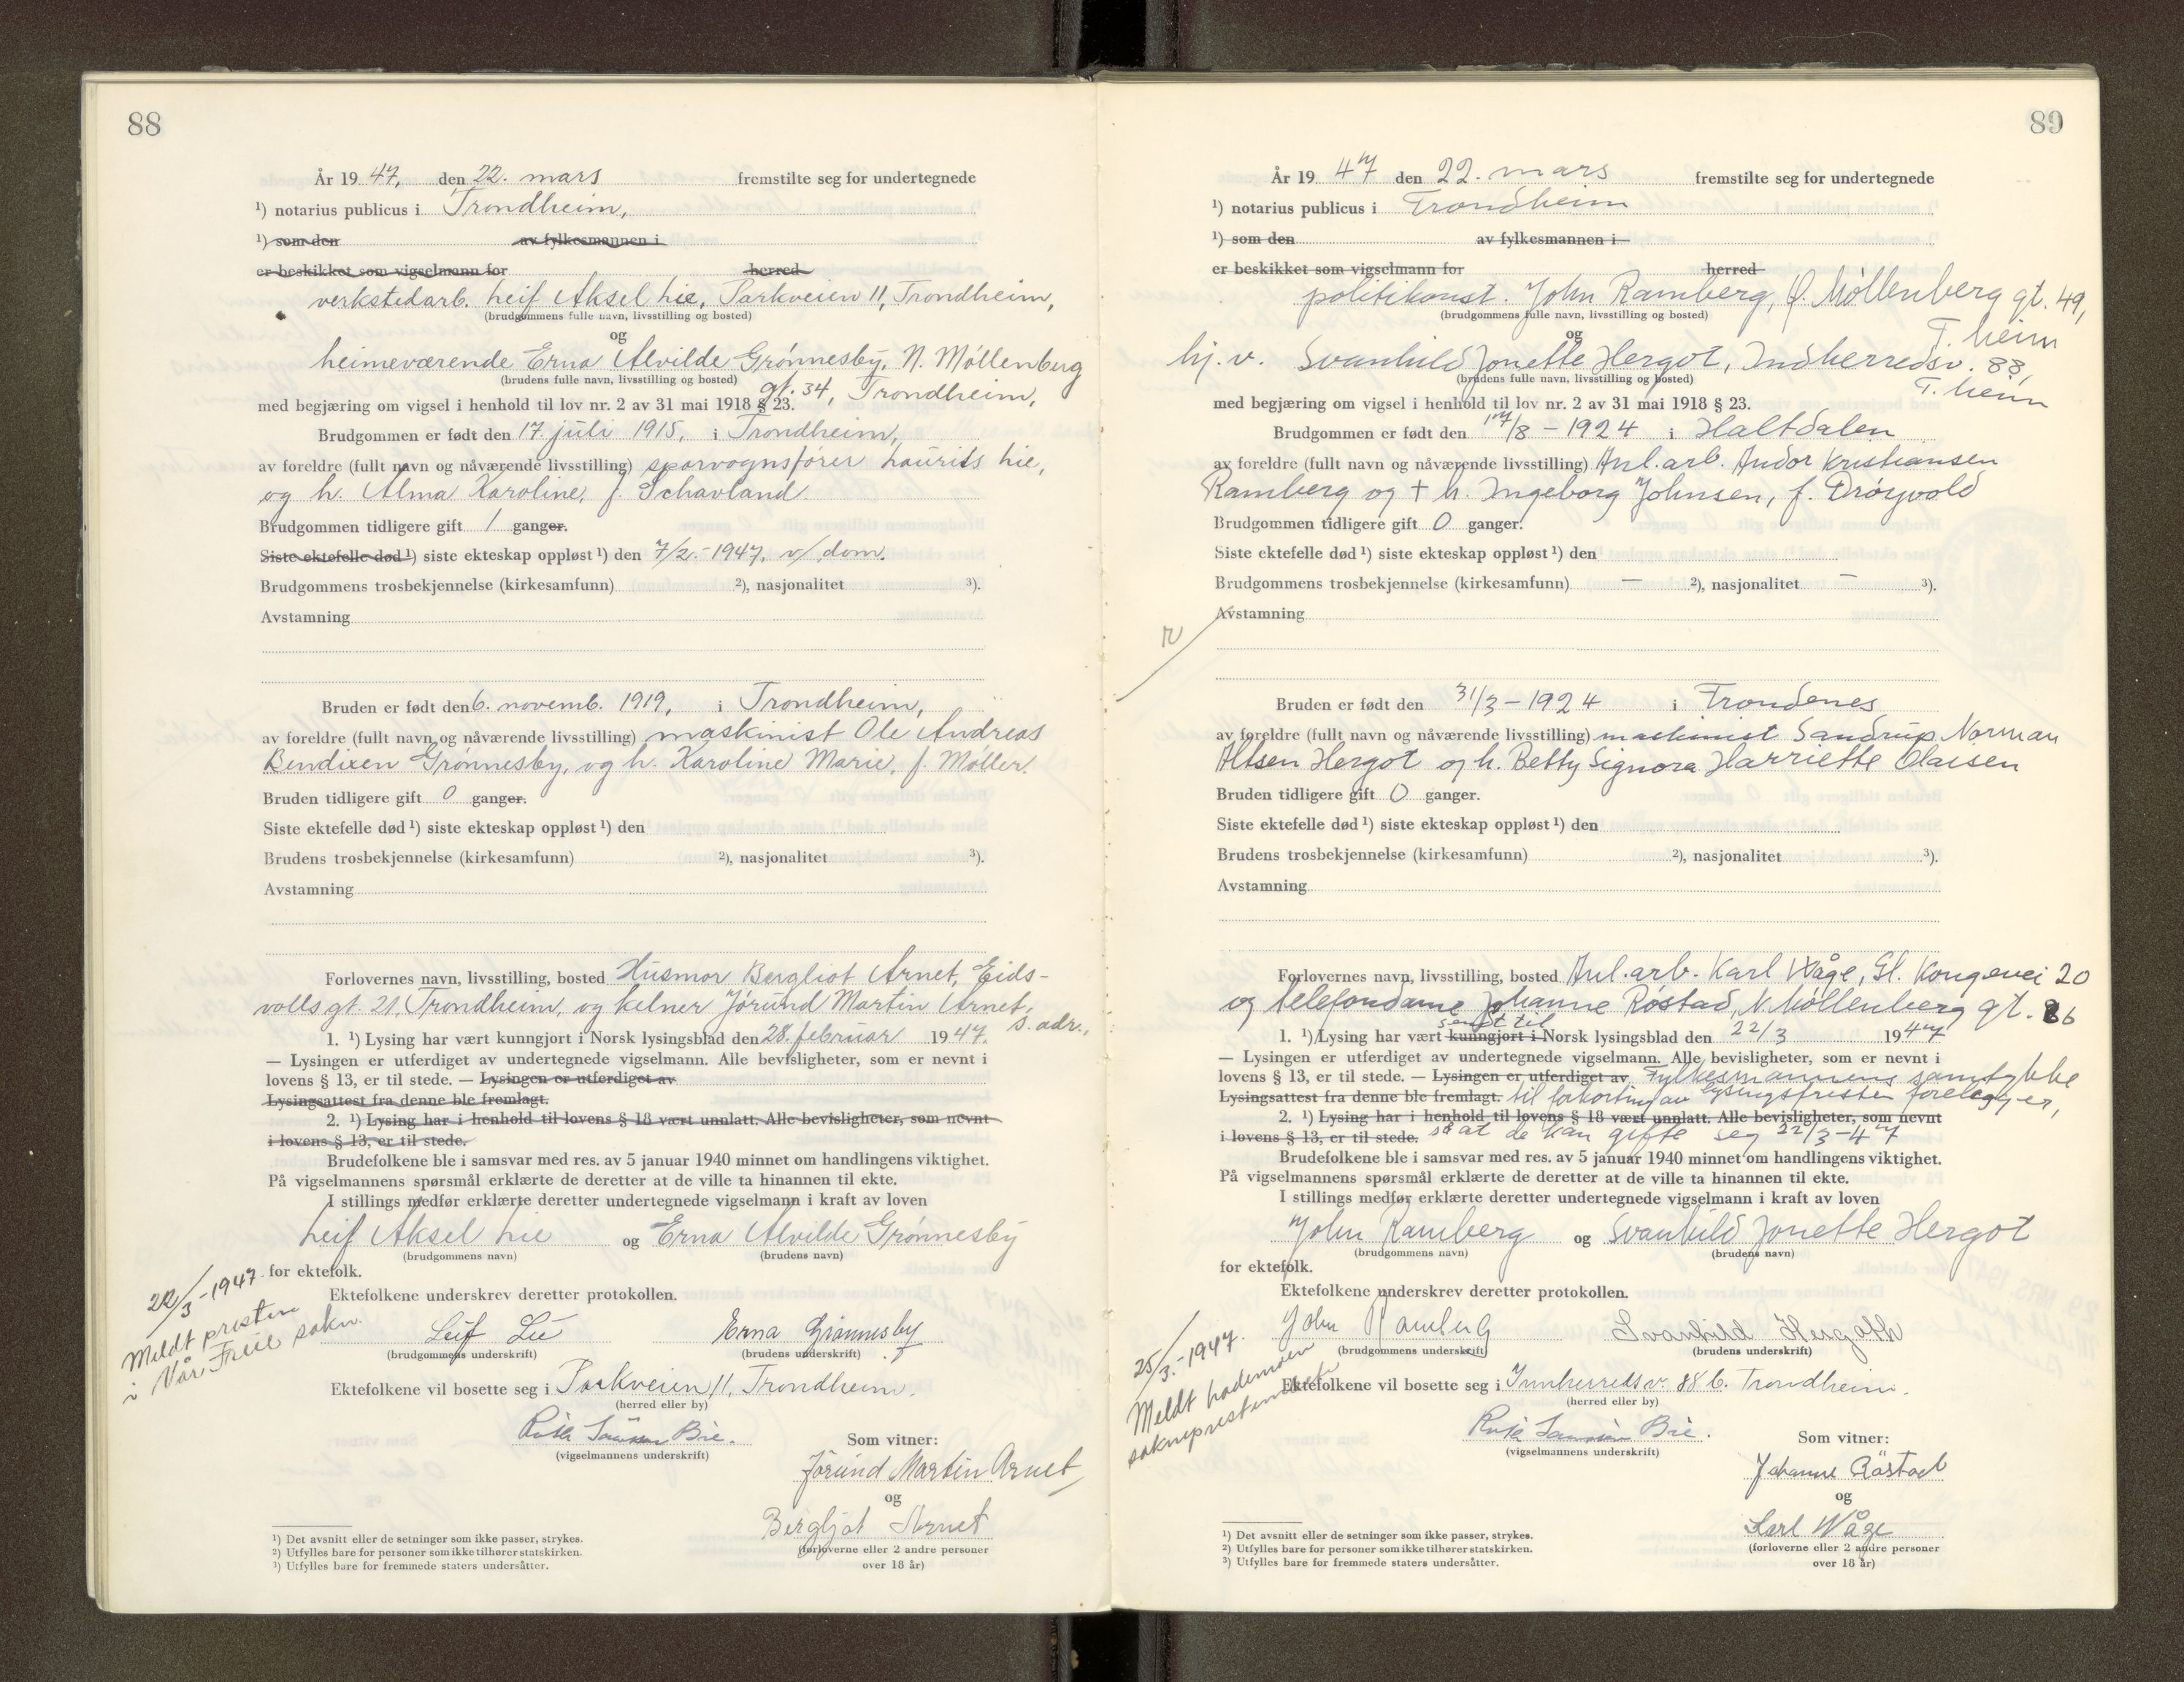 88
År 19 47, den 22. mars fremstilte seg for undertegnede
¹) notarius publicus i Trondheim,
¹) som den av fylkesmannen i
er beskikket som vigselmann for herred
verkstedarb. Leif Aksel Lie, Parkveien 11, Trondheim,
(brudgommens fulle navn, livsstilling og bosted)
og
heimeværende Erna Alvilde Grønnesby, N. Møllenberg
(brudens fulle navn, livsstilling og bosted) gt. 34, Trondheim,
med begjæring om vigsel i henhold til lov nr. 2 av 31 mai 1918 § 23.
Brudgommen er født den 17. juli 1915, i Trondheim,
av foreldre (fullt navn og nåværende livsstilling) sporvognsfører Laurits Lie,
og h. Alma Karoline, f. Schavland
Brudgommen tidligere gift 1 ganger.
Siste ektefelle død ¹) siste ekteskap oppløst ¹) den 7/2.-1947. v/ dom.
Brudgommens trosbekjennelse (kirkesamfunn) ²), nasjonalitet ³).
Avstamning
Bruden er født den 6. novemb. 1919, i Trondheim,
av foreldre (fullt navn og nåværende livsstilling) maskinist Ole Andreas
Bendixen Grønnesby, og h. Karoline Marie, f. Møller.
Bruden tidligere gift 0 ganger.
Siste ektefelle død ¹) siste ekteskap oppløst ¹) den
Brudens trosbekjennelse (kirkesamfunn) ²), nasjonalitet ³).
Avstamning
Forlovernes navn, livsstilling, bosted Husmor Bergliot Arnet, Eids-
vollsgt. 21, Trondheim, og kelner Jørund Martin Arnet,
s. adr.,
1. ¹) Lysing har vært kunngjort i Norsk lysingsblad den 28. februar 19 47.
— Lysingen er utferdiget av undertegnede vigselmann. Alle bevisligheter, som er nevnt i
lovens § 13, er til stede. — Lysingen er utferdiget av
Lysingsattest fra denne ble fremlagt.
2. ¹) Lysing har i henhold til lovens § 18 vært unnlatt. Alle bevisligheter, som nevnt
i lovens § 13, er til stede.
Brudefolkene ble i samsvar med res. av 5 januar 1940 minnet om handlingens viktighet.
På vigselmannens spørsmål erklærte de deretter at de ville ta hinannen til ekte.
I stillings medfør erklærte deretter undertegnede vigselmann i kraft av loven
Leif Aksel Lie og Erna Alvilde Grønnesby
(brudgommens navn) (brudens navn)
for ektefolk.
22/3-1947
Meldt presten
i Vår Frue sokn.
Ektefolkene underskrev deretter protokollen.
Leif Lie Erna Grønnesby
(brudgommens underskrift) (brudens underskrift)
Ektefolkene vil bosette seg i Parkveien 11, Trondheim.
(herred eller by)
Bie.
(vigselmannens underskrift)
Som vitner:
Jørund Martin Arnet
og
Bergljot Arnet
(forloverne eller 2 andre personer
over 18 år)
¹) Det avsnitt eller de setninger som ikke passer, strykes.
²) Utfylles bare for personer som ikke tilhører statskirken.
³) Utfylles bare for fremmede staters undersåtter.
89
År 19 47 den 22. mars fremstilte seg for undertegnede
¹) notarius publicus i Trondheim
¹) som den av fylkesmannen i
er beskikket som vigselmann for herred
politikonst. John Ramberg, Ø. Møllenberg gt. 49,
T.heim
(brudgommens fulle navn, livsstilling og bosted)
og
hj.v. Svanhild Jonette Hergot, Indherredsv. 88,
T.heim
(brudens fulle navn, livsstilling og bosted)
med begjæring om vigsel i henhold til lov nr. 2 av 31 mai 1918 § 23.
Brudgommen er født den 17/8 - 1924 i Haltdalen
av foreldre (fullt navn og nåværende livsstilling) Anl.arb. Andor Kristiansen
Ramberg og † h. Ingeborg Johnsen, f. Drøyvold
Brudgommen tidligere gift 0 ganger.
Siste ektefelle død ¹) siste ekteskap oppløst ¹) den
Brudgommens trosbekjennelse (kirkesamfunn) — ²), nasjonalitet — ³).
Avstamning
Bruden er født den 31/3 - 1924 i Trondenes
av foreldre (fullt navn og nåværende livsstilling) maskinist Sandrup Norman
Altsen Hergot og h. Betty Signora Harriette Olaisen
Bruden tidligere gift 0 ganger.
Siste ektefelle død ¹) siste ekteskap oppløst ¹) den
Brudens trosbekjennelse (kirkesamfunn) ²), nasjonalitet ³).
Avstamning
Forlovernes navn, livsstilling, bosted Anl.arb. Karl Våge, Gl. Kongevei 20
og telefondame Johanne Røstad, N. Møllenberg gt. 86
sendt til
1. ¹) Lysing har vært kunngjort i Norsk lysingsblad den 22/3 19 47
— Lysingen er utferdiget av undertegnede vigselmann. Alle bevisligheter, som er nevnt i
lovens § 13, er til stede. — Lysingen er utferdiget av Fylkesmannens samtykke
Lysingsattest fra denne ble fremlagt. til forkorting av lysingsfristen foreligger,
2. ¹) Lysing har i henhold til lovens § 18 vært unnlatt. Alle bevisligheter, som nevnt
i lovens § 13, er til stede. så at de kan gifte seg 22/3-47
Brudefolkene ble i samsvar med res. av 5 januar 1940 minnet om handlingens viktighet.
På vigselmannens spørsmål erklærte de deretter at de ville ta hinannen til ekte.
I stillings medfør erklærte deretter undertegnede vigselmann i kraft av loven
John Ramberg og Svanhild Jonette Hergot
(brudgommens navn) (brudens navn)
for ektefolk.
Ektefolkene underskrev deretter protokollen.
John Ramberg Svanhild Hergoth
(brudgommens underskrift) (brudens underskrift)
25/3.-1947.
Meldt hademoen
sokneprestembete
Ektefolkene vil bosette seg i Innherredsv. 88 b. Trondheim.
(herred eller by)
Bie.
(vigselmannens underskrift)
Som vitner:
Johanne Røstad
og
Karl Wåge
(forloverne eller 2 andre personer
over 18 år)
¹) Det avsnitt eller de setninger som ikke passer, strykes.
²) Utfylles bare for personer som ikke tilhører statskirken.
³) Utfylles bare for fremmede staters undersåtter.